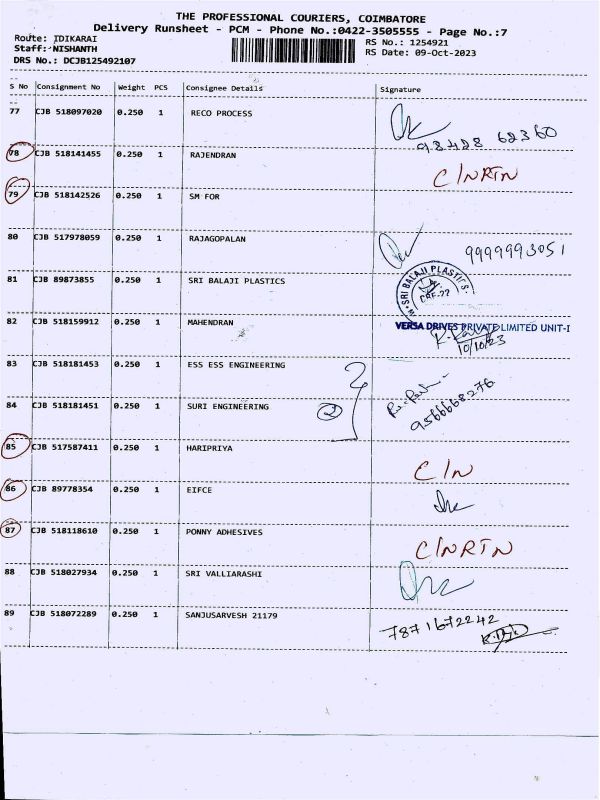 THE PROFESSIONAL COURIERS, COIMBATORE
Delivery Runsheet - PCM - Phone No.:0422-3505555 - Page No.:7
Route: IDIKARAI
RS No.: 1254921
Staff: NISHANTH
RS Date: 09-Oct-2023
DRS No.: DCJB125492107
S No Consignment No Weight PCS Consignee Details Signature
77 CJB 518097020 0.250 1 RECO PROCESS
98428 62360
78 CJB 518141455 0.250 1 RAJENDRAN C/NRTN
79 CJB 518142526 0.250 1 SM FOR
80 CJB 517978059 0.250 1 RAJAGOPALAN 9999993051
81 CJB 89873855 0.250 1 SRI BALAJI PLASTICS SRI BALAJI PLASTICS
CBE-22
82 CJB 518159912 0.250 1 MAHENDRAN VERSA DRIVES PRIVATE LIMITED UNIT-I
10/10/23
83 CJB 518181453 0.250 1 ESS ESS ENGINEERING
84 CJB 518181451 0.250 1 SURI ENGINEERING 2 9566668276
85 CJB 517587411 0.250 1 HARIPRIYA C/N
86 CJB 89778354 0.250 1 EIFCE
87 CJB 518118610 0.250 1 PONNY ADHESIVES C/NRTN
88 CJB 518027934 0.250 1 SRI VALLIARASHI
89 CJB 518072289 0.250 1 SANJUSARVESH 21179 7871672242